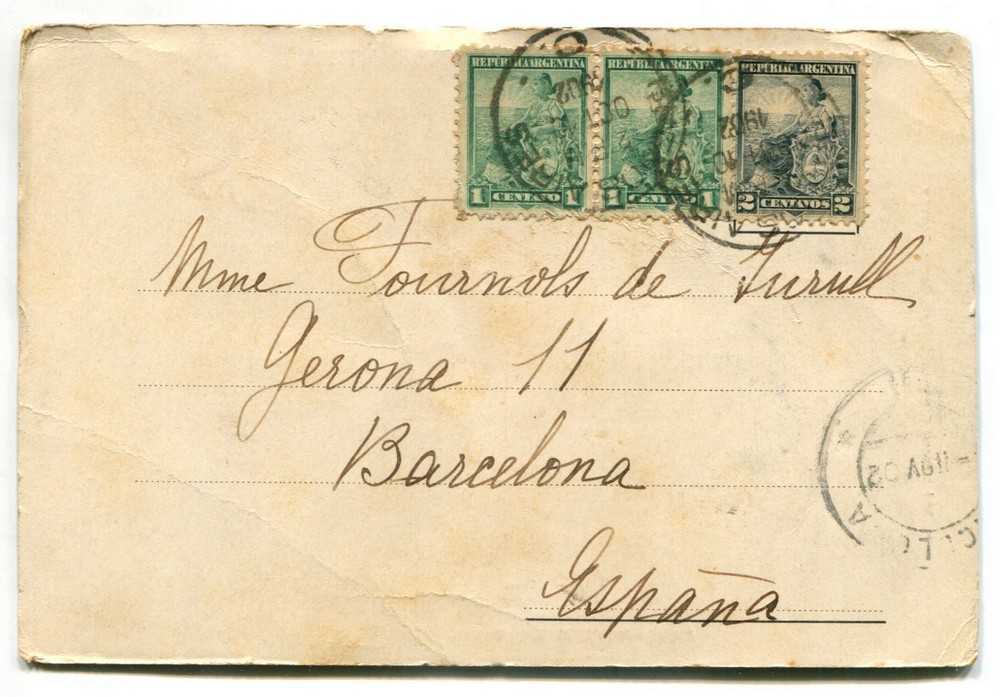 REPUBLICA ARGENTINA REPUBLICA ARGENTINA REPUBLICA ARGENTINA
1 CENTAVO 1 1 CENTAVO 1 2 CENTAVOS 2
1902
Mme Fournols de Turull
Gerona 11
Barcelona
España